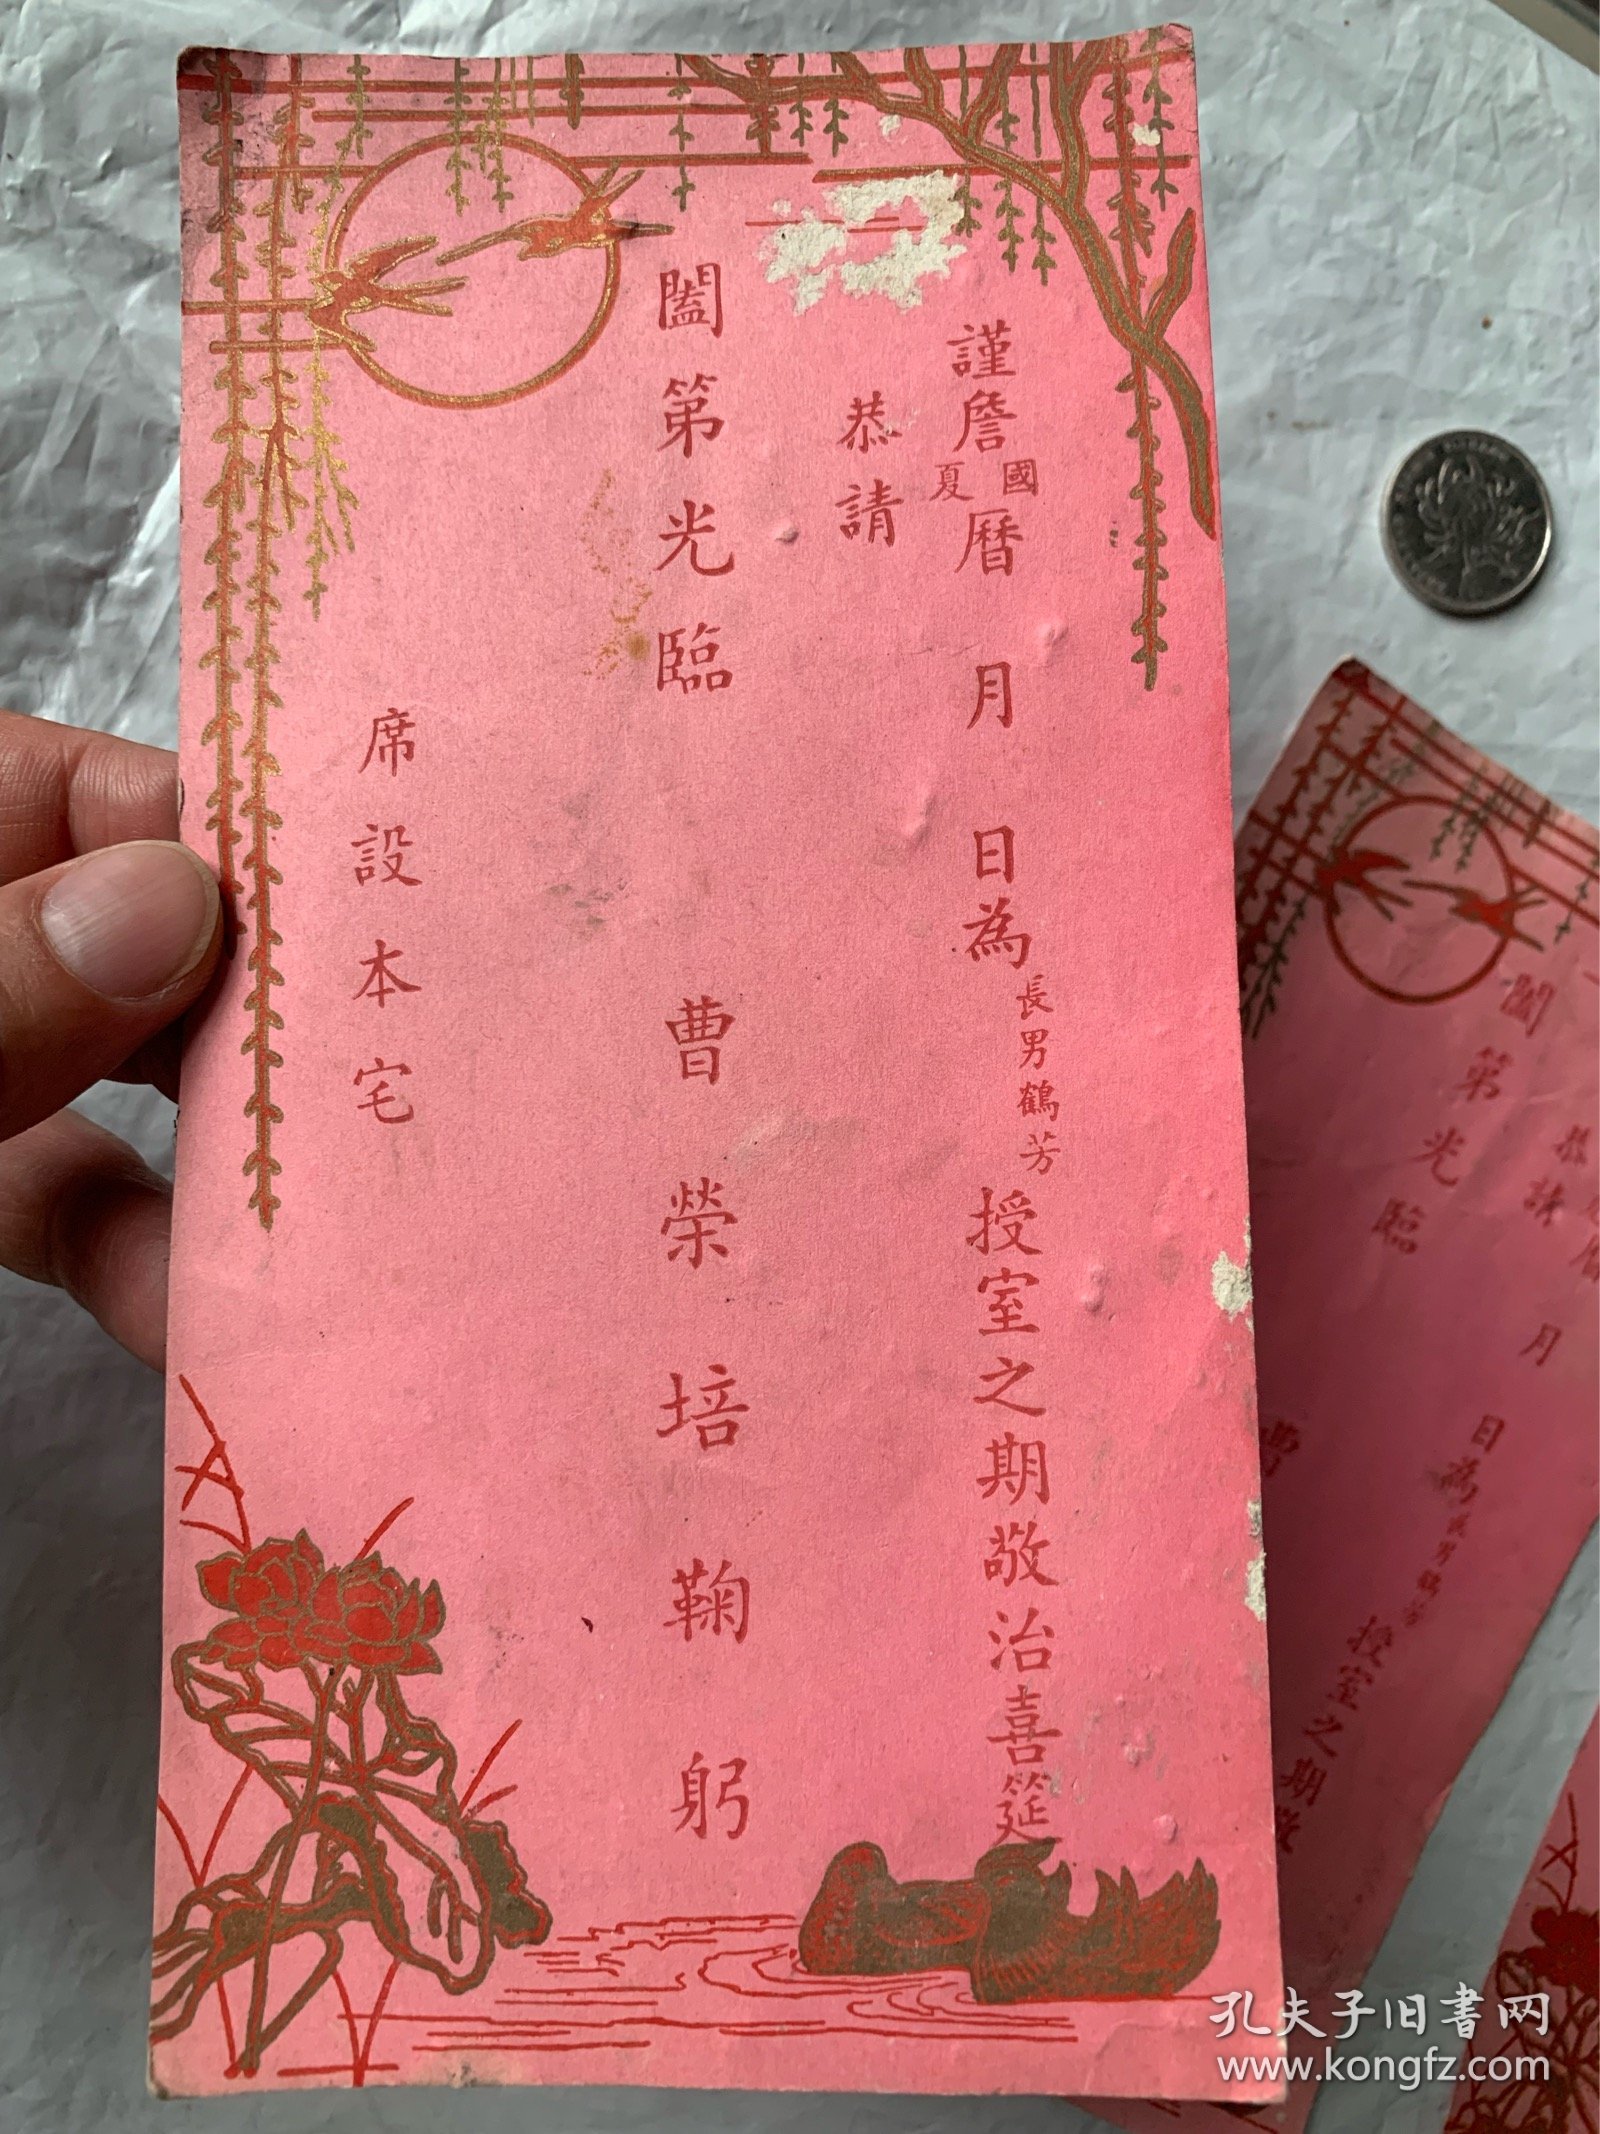 謹詹國夏曆　月　日為長男鶴芳授室之期敬治喜筵
恭請
闔第光臨　曹榮培鞠躬
席設本宅
恭請
曆　月　日為長男鶴芳授室之期敬
闔第光臨　曹
孔夫子旧書网
www.kongfz.com